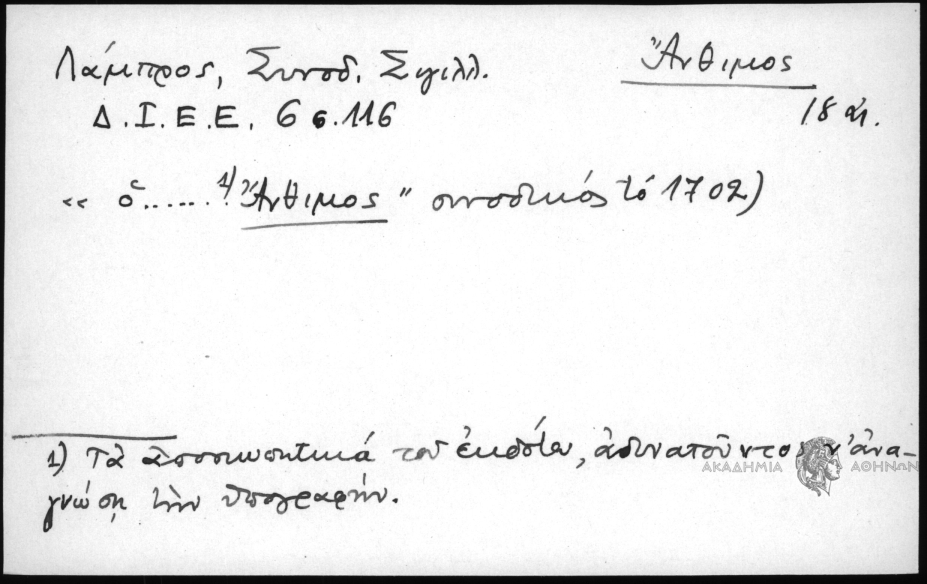 Λάμπρος, Συνοδ. Σιγιλλ.
Ἄνθιμος
Δ.Ι.Ε.Ε. 6 σ.116
18 αἰ.
« ὁ...... ¹⁾ Ἄνθιμος " συνοδικός τό 1702)
1) Τὰ ἀποσιωπητικά τοῦ ἐκδότου, ἀδυνατοῦντος ν' ἀνα-
γνώσῃ τὴν ὑπογραφήν.
ΑΚΑΔΗΜΙΑ ΑΘΗΝΩΝ